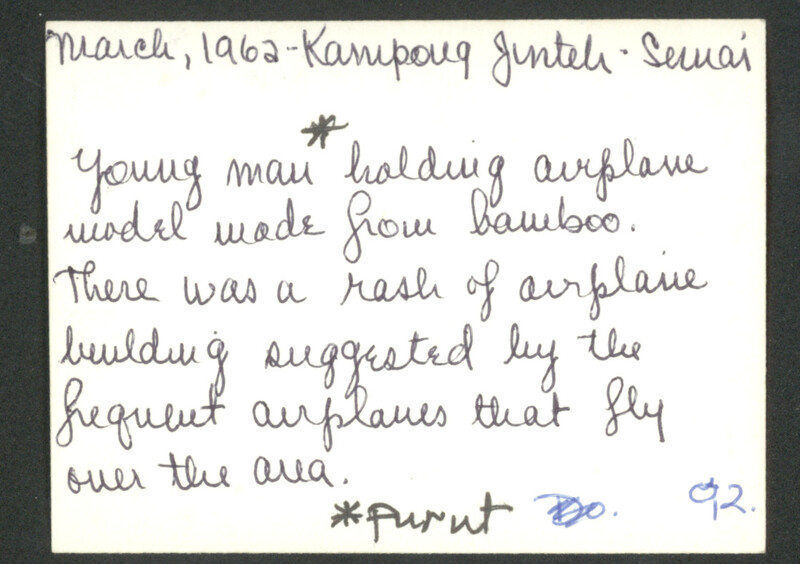 March, 1962 - Kampong Jinteh - Semai
Young man* holding airplane
model made from bamboo.
There was a rash of airplane
building suggested by the
frequent airplanes that fly
over the area.
*Purut
92.